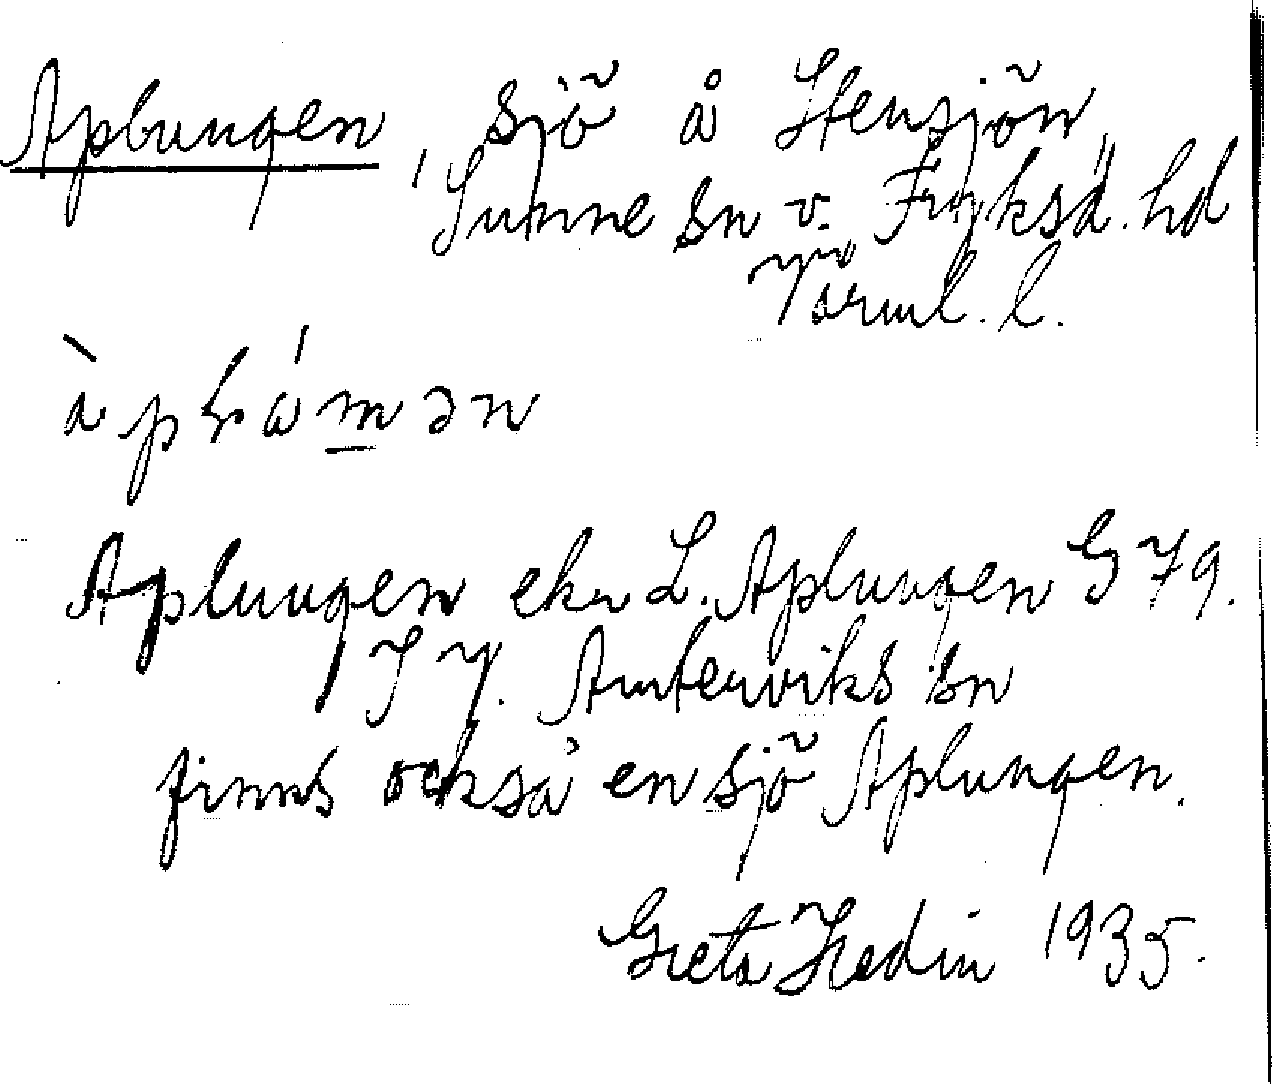 Aplungen, sjö å Stensjön,
Sunne sn v. Fryksd. hd
Värml. l.
Aplungen ekn L. Aplungen G 79.
I Y. Ämterviks sn
finns också en sjö Aplungen.
Greta Hedin 1935.